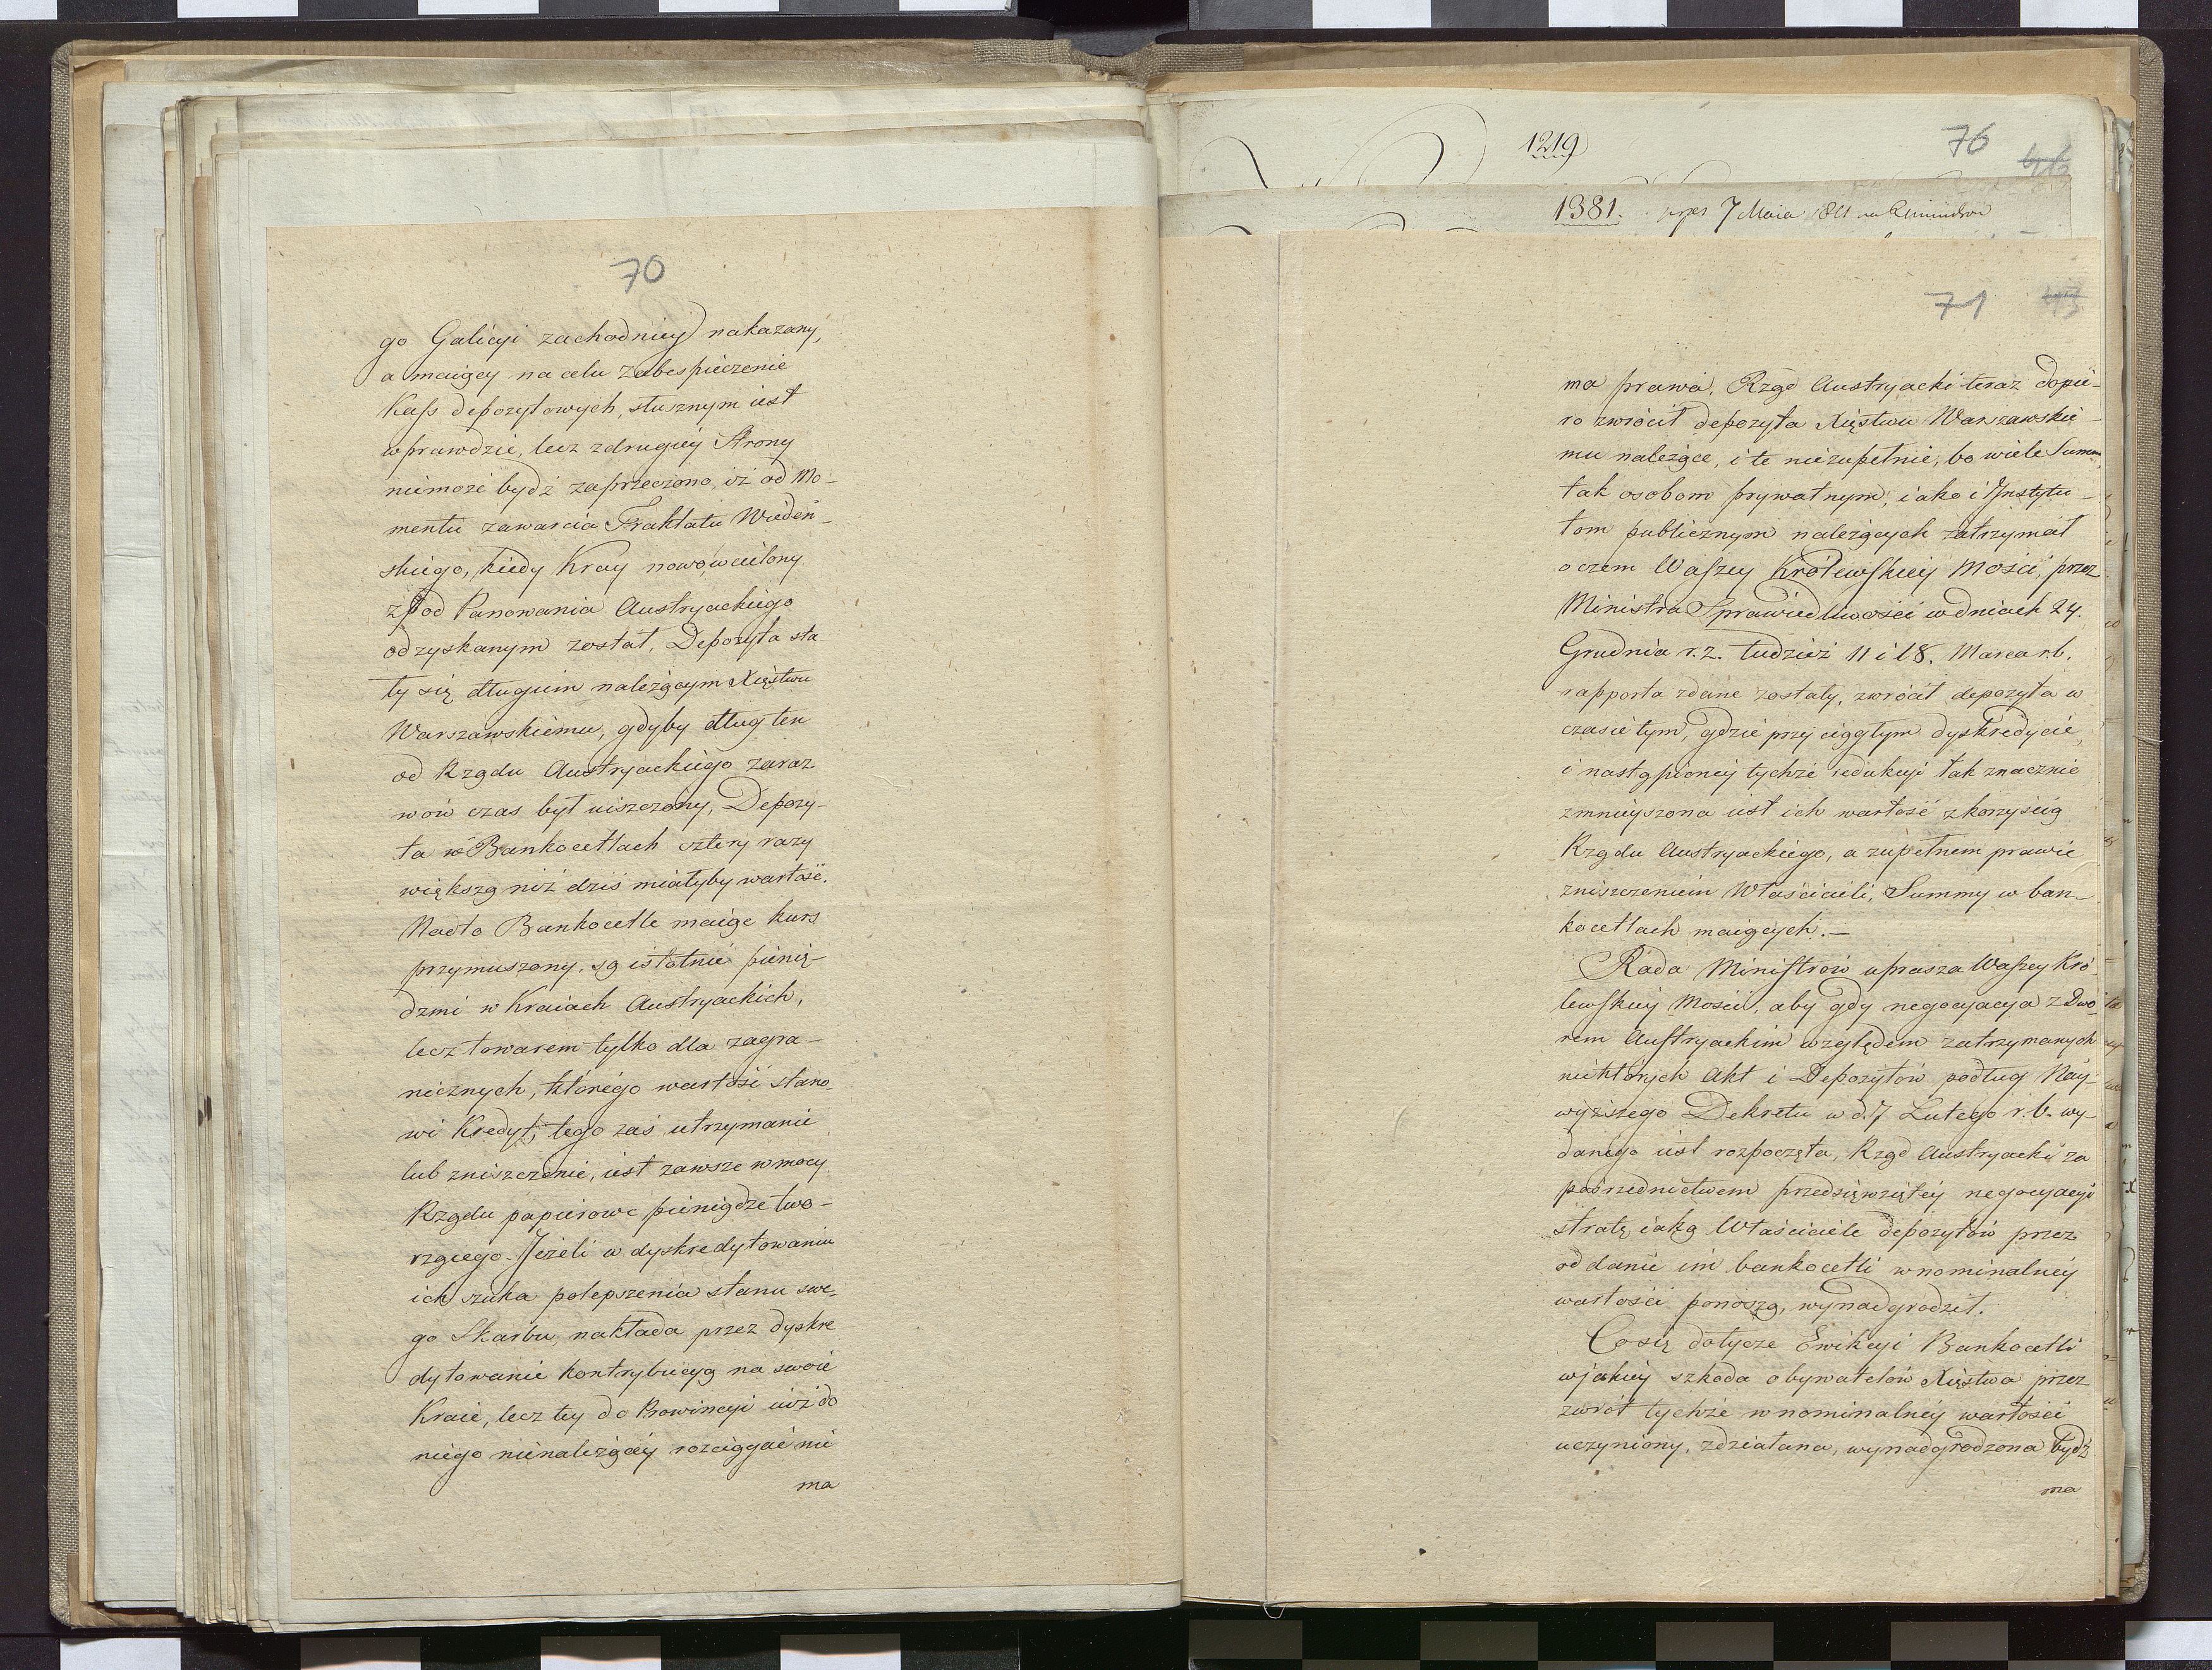 70
go Galicyi zachodniey nakazany,
a maiący na celu zabespieczenie
Kass depozytowych, słusznym iest
wprawdzie, lecz z drugiey Strony
niemoże bydź zaprzeczono, iż od Mo-
mentu zawarcia Traktatu Wiedeń-
skiego, kiedy Kray nowo wcielony
z pod Panowania Austryackiego
odzyskanym został, Depozyta sta
ły się długiem należącym Xięstwu
Warszawskiemu, gdyby dług ten
od Rządu Austryackiego zaraz
wów czas był uiszczony, Depozy-
ta w Bankocetlach cztery razy
większą niż dziś miałyby wartość.
Nadto Bankocetle maiąc kurs
przymuszony, są istotnie pienię-
dzmi w Kraiach Austryackich,
lecz towarem tylko dla zagra-
nicznych, którego wartość stano-
wi Kredyt, tego zaś utrzymanie
lub zniszczenie, iest zawsze w mocy
Rządu papierowe pieniądze two-
rzącego. Jeżeli w dyskredytowaniu
ich szuka polepszenia stanu swe-
go Skarbu, nakłada przez dyskre
dytowanie kontrybucyą na swoie
Kraie, lecz tey do Prowincyi iuż do
niego nienależącey rozciągać nie
ma
1219
76
1381.
7 Maia 1811
71
ma prawa, Rząd Austryacki teraz dopie-
ro zwrócił depozyta Xięstwu Warszawskie
mu należące, i te niezupełnie, bo wiele Summ,
tak osobom prywatnym, iako i Instytu-
tom publicznym należących zatrzymał
o czem Waszey Królewskiey Mości, przez
Ministra Sprawiedliwości w dniach 24.
Grudnia r. z. tudzież 11 i 18. Marca r. b.
rapporta zdane zostały, zwrócił depozyta w
czasie tym, gdzie przy ciągłym dyskredycie,
i nastąpioney tychże redukcyi tak znacznie
zmnieyszona iest ich wartość z korzyścią
Rządu Austryackiego, a zupełnem prawie
zniszczeniem Właścicieli, Summy w ban-
kocetlach maiących. —
Rada Ministrów uprasza Waszey Kró
lewskiey Mości, aby gdy negocyacya z Dwo-
rem Austryackim względem zatrzymanych
niektórych Akt i Depozytów podług Nay-
wyższego Dekretu w d. 7 Lutego r. b. wy-
danego iest rozpoczęta, Rząd Austryacki za
pośrednictwem przedsięwziętey negocyacyi
stratę iaką Właściciele depozytów przez
oddanie im bankocetli w nominalney
wartości ponoszą, wynadgrodził.
Co się dotycze Ewikcyi Bankocetli
w jakiey szkoda obywatelów Xięstwa przez
zwrót tychże w nominalney wartości
uczyniony, zdziałana, wynadgrodzona bydź
ma